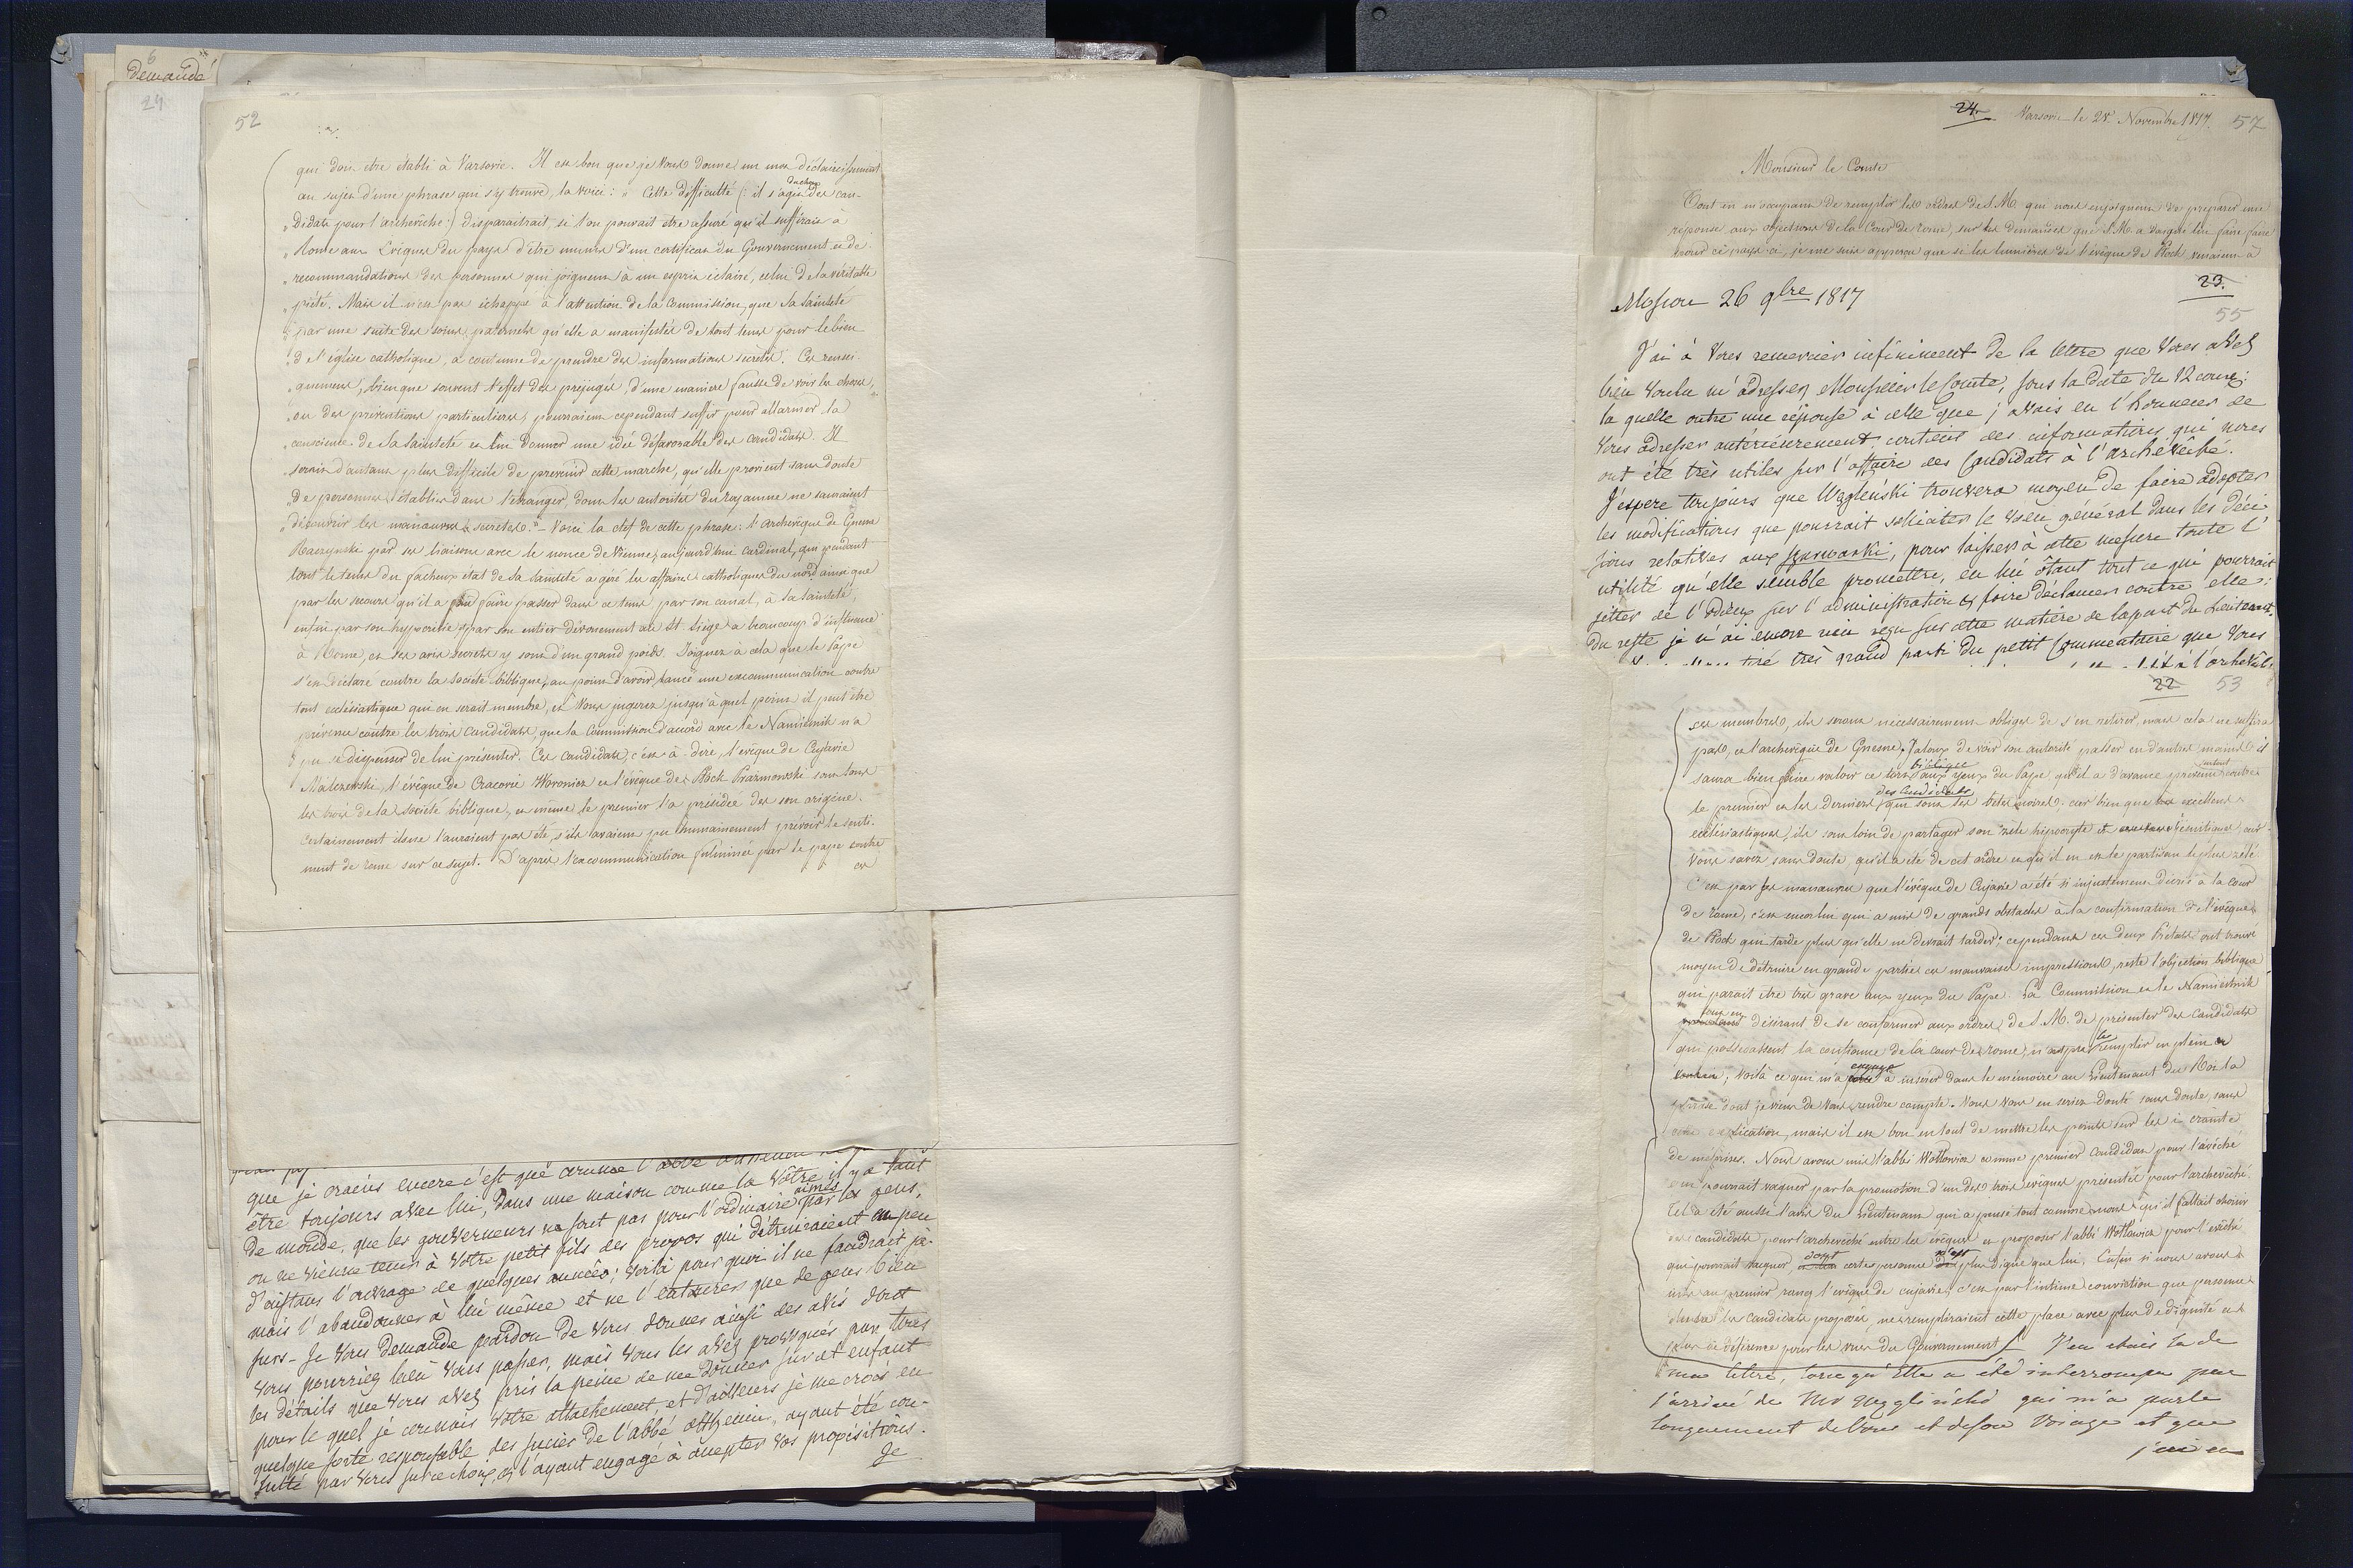 demandé
6
24
52
qui doit être établi à Varsovie. Il est bon que je vous donne un mot d'éclaircissement
au sujet d'une phrase qui s'y trouve, la voici: „ Cette difficulté (: il s'agit du choix des can-
„didats pour l'archevêché:) disparaitrait, si l'on pouvait etre assuré qu'il suffirait à
„Rome aux Evêques du pays d'être munis d'un certificat du Gouvernement et de
„recommandations des personnes qui joignent à un esprit éclairé, celui de la véritable
„piété. Mais il n'a pas échappé à l'attention de la Commission, que Sa Sainteté
„par une suite des soins paternels qu'elle a manifestés de tout tems pour le bien
„de l'église catholique, a coutume de prendre des informations secrètes. Ces rensei-
„gnemens, bien que souvent l'effet des préjugés, d'une maniere fausse de voir les choses,
„ou des préventions particulieres, pourraient cependant suffir pour allarmer la
„conscience de Sa Sainteté et lui donner une idée défavorable des candidats. Il
„serait d'autant plus difficile de prevenir cette marche, qu'elle provient sans doute
„de personnes établies dans l'étranger, dont les autorités du royaume ne sauraient
„découvrir les manœuvres secretes." – Voici la clef de cette phrase: l'archevêque de Gnesne
Raczynski par ses liaisons avec le nonce de Vienne, aujourd'hui cardinal, qui pendant
tout le tems du facheux état de Sa Sainteté a géré les affaires catholiques du nord ainsi que
par les secours qu'il a fait passer dans ce tems, par son canal, à Sa Sainteté,
enfin par son hypocrisie et par son entier dévouement au St Siège a beaucoup d'influence
à Rome, et ses avis secrets y sont d'un grand poids. Joignez à cela que le Pape
s'est déclaré contre la Société biblique, au point d'avoir lancé une excommunication contre
tout ecclésiastique qui en serait membre, et vous jugerez jusqu'à quel point il peut être
prévenu contre les trois candidats, que la Commission d'accord avec le Namiestnik n'a
pu se dispenser de lui présenter. Ces candidats, c'est à dire, l'evêque de Cujavie
Malczewski, l'évêque de Cracovie Woronicz et l'évêque de Plock Prazmowski sont tous
les trois de la société biblique, et même le premier l'a présidée dès son origine.
Certainement ils ne l'auraient pas été, s'ils avaient pu humainement prévoir le senti-
ment de Rome sur ce sujet. D'après l'excommunication fulminée par le pape contre
que je crains encore c'est que comme l'abbé
être toujours avec lui, dans une maison comme la vôtre il y a tant
de monde, que les gouverneurs ne sont pas pour l'ordinaire aimés par les gens,
on ne vienne tenir à votre petit fils des propos qui détruiraient en peu
d'instans l'ouvrage de quelques années; voilà pour quoi il ne faudrait ja-
mais l'abandonner à lui même et ne l'entourer que de gens bien
surs – Je vous demande pardon de vous donner ainsi des avis dont
vous pourriez bien vous passer, mais vous les avez provoqués par tous
les détails que vous avez pris la peine de me donner sur cet enfant
pour le quel je connais votre attachement, et d'ailleurs je me crois en
quelque sorte responsable des succès de l'abbé ayant été con-
sulté par vous sur ce choix, et l'ayant engagé à accepter vos propositions.
Je
24.
Varsovie le 28 Novembre 1817.
57
Monsieur le Comte
Tout en m'occupant de remplir les ordres de S.M. qui nous enjoignent de préparer une
réponse aux objections de la Cour de Rome, sur les demandes que S.M. a daigné lui faire faire
pour ce pays ci, je me suis apperçu que si les lumières de l'évêque de Plock venaient à
23.
55
Moscou 26 9bre 1817
J'ai à Vous remercier infiniment de la lettre que Vous avez
bien voulu m'adresser, Monsieur le Comte, sous la date du 12 cour:
la quelle outre une réponse à celle que j'avais eu l'honneur de
Vous adresser antérieurement contient des informations qui nous
ont été très utiles sur l'affaire des Candidats à l'archevêché.
J'espere toujours que Węgleński trouvera moyen de faire adopter
les modifications que pourrait solliciter le voeu général dans les déci-
sions relatives aux szarwarki, pour laisser à cette mesure toute l'
utilité qu'elle semble promettre, en lui ôtant tout ce qui pourrait
jetter de l'odieux sur l'administration et faire déclamer contre elle:
Du reste je n'ai encore rien reçu sur cette matière de la part du Lieutenant.
tiré très grand parti du petit Commentaire que Vous
à l'archevêché
22
53
ses membres, ils seront necessairement obligés de s'en retirer, mais cela ne suffira
pas, et l'archevêque de Gnesne, jaloux de voir son autorité passer en d'autres mains il
saura bien faire valoir ce biblique aux yeux du Pape, qu'il a d'avance prévenu surtout contre
le premier et les derniers des Candidats qui sont ses bêtes noires: car bien que excellens
ecclésiastiques, ils sont loin de partager son zèle hipocryte et Jésuitique, car
vous savez sans doute, qu'il a été de cet ordre et qu'il en est le partisan le plus zélé.
C'est par ses manœuvres que l'évêque de Cujavie a été si injustement décrié à la Cour
de Rome, c'est encor lui qui a mis de grands obstacles à la confirmation de l'évêque
de Plock qui tarde plus qu'elle ne devrait tarder: cependant ces deux Prélats ont trouvé
moyen de détruire en grande partie ces mauvaises impressions, reste l'objection biblique
qui parait etre très grave aux yeux du Pape. La Commission et le Namiestnik
tout en désirant de se conformer aux ordres de S.M. de présenter des candidats
qui possedassent la confiance de la cour de Rome, n'a pu les remplir en plein
voilà ce qui m'a engagé à insérer dans le mémoire au Lieutenant du Roi la
phrase dont je viens de vous rendre compte. Vous vous en seriez douté sans doute, sans
explication, mais il est bon en tout de mettre les points sur les i crainte
de méprises. Nous avons mis l'abbé Wollowicz comme premier candidat pour l'évêché
qui pourrait vaquer par la promotion d'un des trois évêques présentés pour l'archevêché.
Tel a été aussi l'avis du Lieutenant qui a pensé tout comme nous qu'il fallait choisir
les candidats pour l'archevêché entre les évêques et proposer l'abbé Wollowicz pour l'évêché
qui pourrait vaquer, dont certes personne n'est plus digne que lui. Enfin si nous avons
mis au premier rang l'évêque de Cujavie, c'est par l'intime conviction que personne
des candidats proposés, ne rempliraient cette place avec plus de dignité et
plus de déférence pour les vues du Gouvernement. J'en etais la de
ma lettre, lorsqu'Elle a été interrompu par
l'arrivé de Mr Węgliński qui m'a parlé
longuement de Vous et de son Voiage et que
j'ai eu